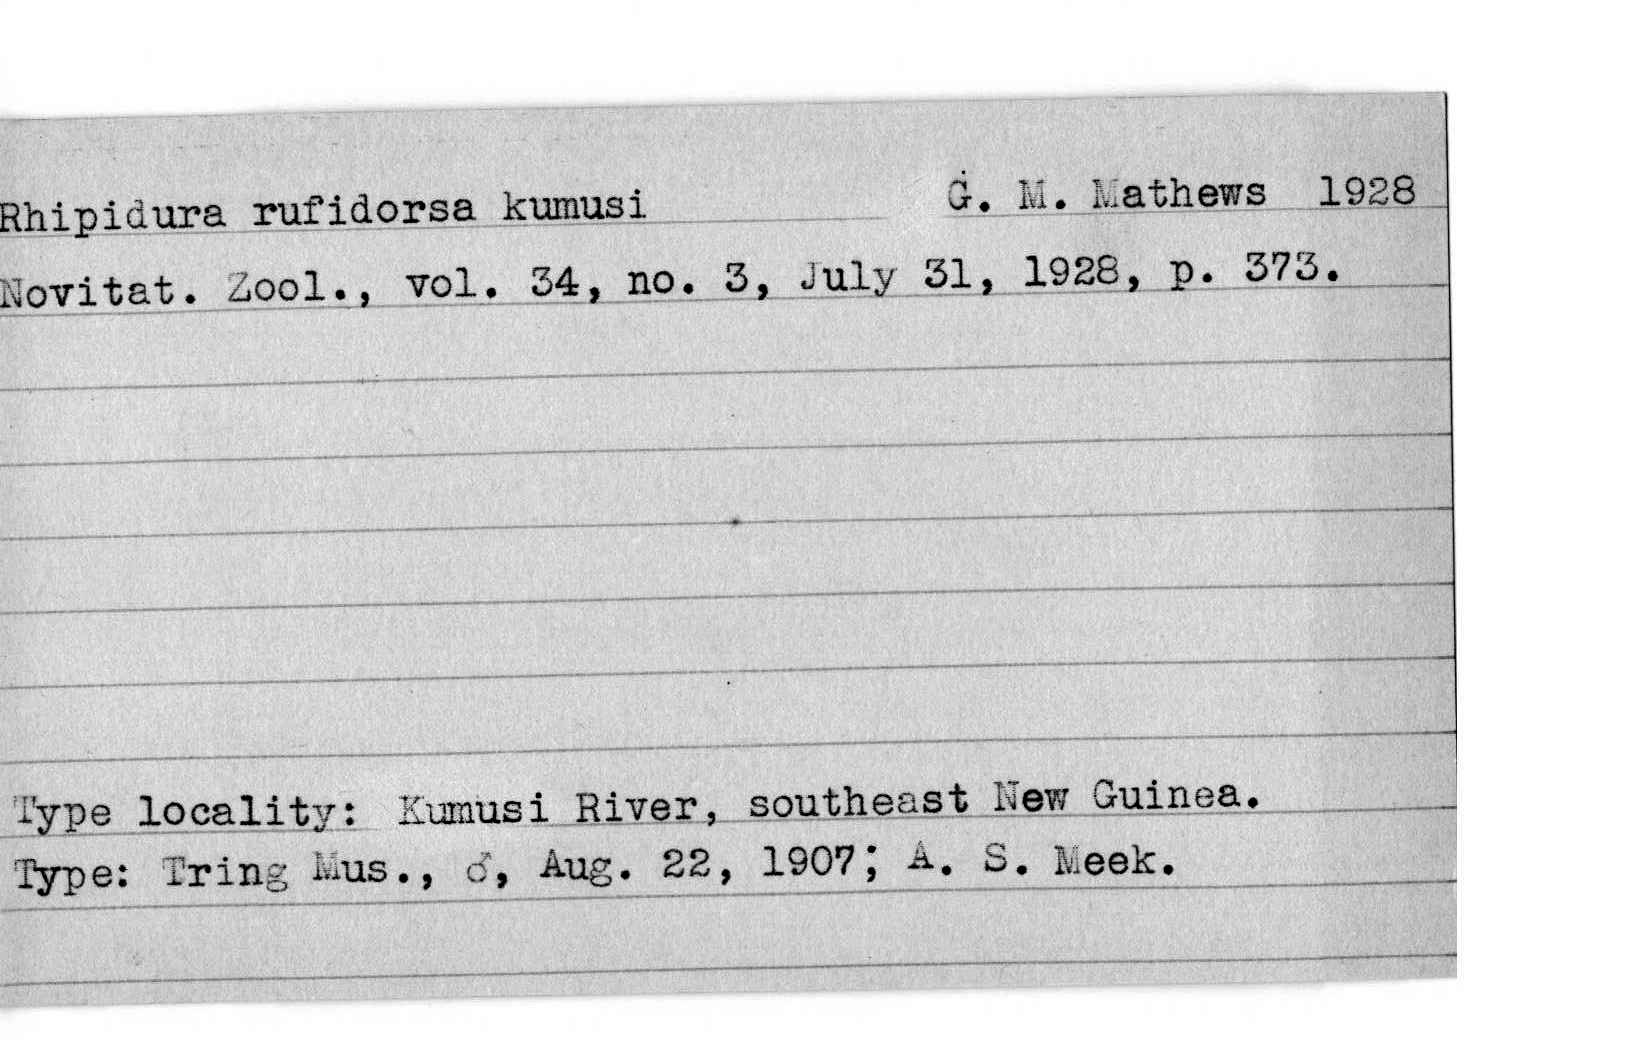 Rhipidura rufidorsa kumusi G. M. Mathews 1928
Novitat. Zool., vol. 34, no. 3, July 31, 1928, p. 373.
Type locality: Kumusi River, southeast New Guinea.
Type: Tring Mus., ♂, Aug. 22, 1907; A. S. Meek.